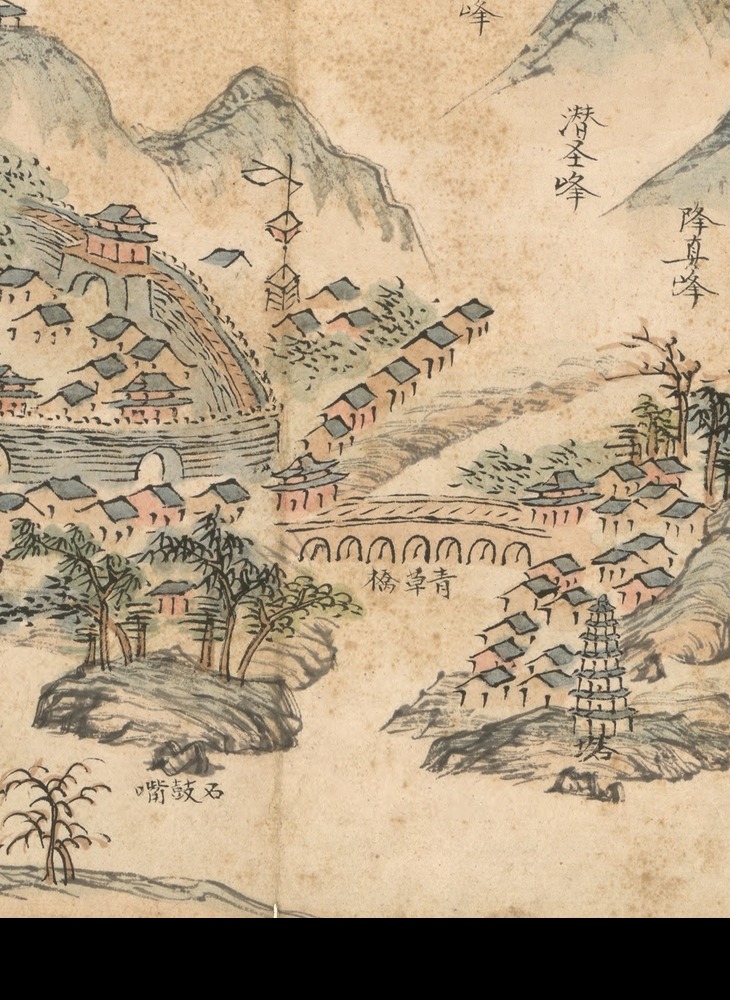 峰
潜圣峰
降真峰
青草橋
塔
石鼓嘴